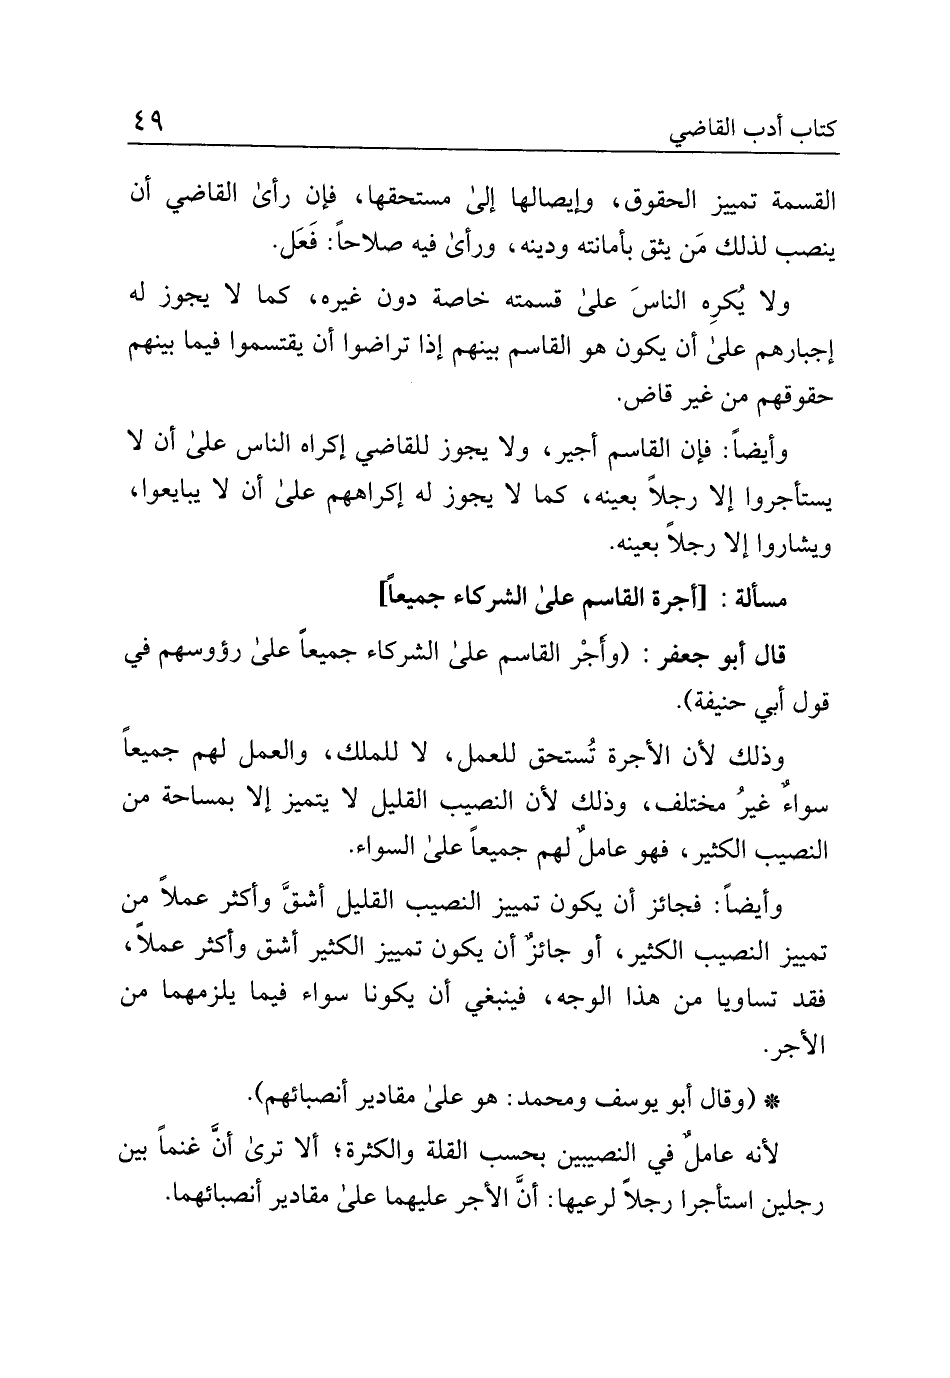 كتاب أدب القاضي ٤٩
القسمة تمييز الحقوق، وإيصالها إلىٰ مستحقها، فإن رأىٰ القاضي أن
ينصب لذلك مَن يثق بأمانته ودينه، ورأىٰ فيه صلاحاً: فَعَل.
ولا يُكرِه الناسَ علىٰ قسمته خاصة دون غيره، كما لا يجوز له
إجبارهم علىٰ أن يكون هو القاسم بينهم إذا تراضوا أن يقتسموا فيما بينهم
حقوقهم من غير قاض.
وأيضاً: فإن القاسم أجير، ولا يجوز للقاضي إكراه الناس علىٰ أن لا
يستأجروا إلا رجلاً بعينه، كما لا يجوز له إكراههم علىٰ أن لا يبايعوا،
ويشاروا إلا رجلاً بعينه.
مسألة : [أجرة القاسم علىٰ الشركاء جميعاً]
قال أبو جعفر : (وأَجْر القاسم علىٰ الشركاء جميعاً علىٰ رؤوسهم في
قول أبي حنيفة).
وذلك لأن الأجرة تُستحق للعمل، لا للملك، والعمل لهم جميعاً
سواءٌ غيرُ مختلف، وذلك لأن النصيب القليل لا يتميز إلا بمساحة من
النصيب الكثير، فهو عاملٌ لهم جميعاً علىٰ السواء.
وأيضاً: فجائز أن يكون تمييز النصيب القليل أشقَّ وأكثر عملاً من
تمييز النصيب الكثير، أو جائزٌ أن يكون تمييز الكثير أشق وأكثر عملاً،
فقد تساويا من هذا الوجه، فينبغي أن يكونا سواء فيما يلزمهما من
الأجر.
* (وقال أبو يوسف ومحمد: هو علىٰ مقادير أنصبائهم).
لأنه عاملٌ في النصيبين بحسب القلة والكثرة؛ ألا ترىٰ أنَّ غنماً بين
رجلين استأجرا رجلاً لرعيها: أنَّ الأجر عليهما علىٰ مقادير أنصبائهما.